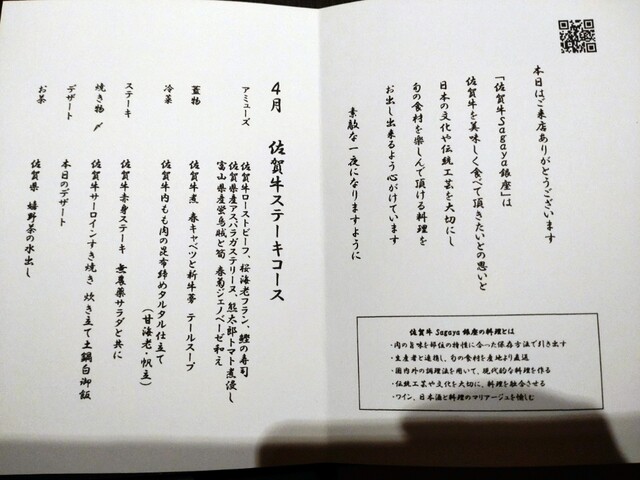 本日はご来店ありがとうございます
「佐賀牛Sagaya銀座」は
佐賀牛を美味しく食べて頂きたいとの思いと
日本の文化や伝統工芸を大切にし
旬の食材を楽しんで頂ける料理を
お出し出来るよう心がけています
素敵な一夜になりますように
佐賀牛 Sagaya 銀座の料理とは
・肉の旨味を部位の特性に合った保存方法で引き出す
・生産者と連携し、旬の食材を産地より直送
・国内外の調理法を用いて、現代的な料理を作る
・伝統工芸や文化を大切に、料理を融合させる
・ワイン、日本酒と料理のマリアージュを愉しむ
4月 佐賀牛ステーキコース
アミューズ 佐賀牛ローストビーフ、桜海老フラン、鰹の寿司
佐賀県産アスパラガステリーヌ、熊太郎トマト煮浸し
富山県産蛍烏賊と筍 春菊ジェノベーゼ和え
蓋物 佐賀牛煮 春キャベツと新牛蒡 テールスープ
冷菜 佐賀牛内もも肉の昆布締めタルタル仕立て
(甘海老・帆立)
ステーキ 佐賀牛赤身ステーキ 無農薬サラダと共に
焼き物〆 佐賀牛サーロインすき焼き 炊き立て土鍋白御飯
デザート 本日のデザート
お茶 佐賀県 嬉野茶の水出し